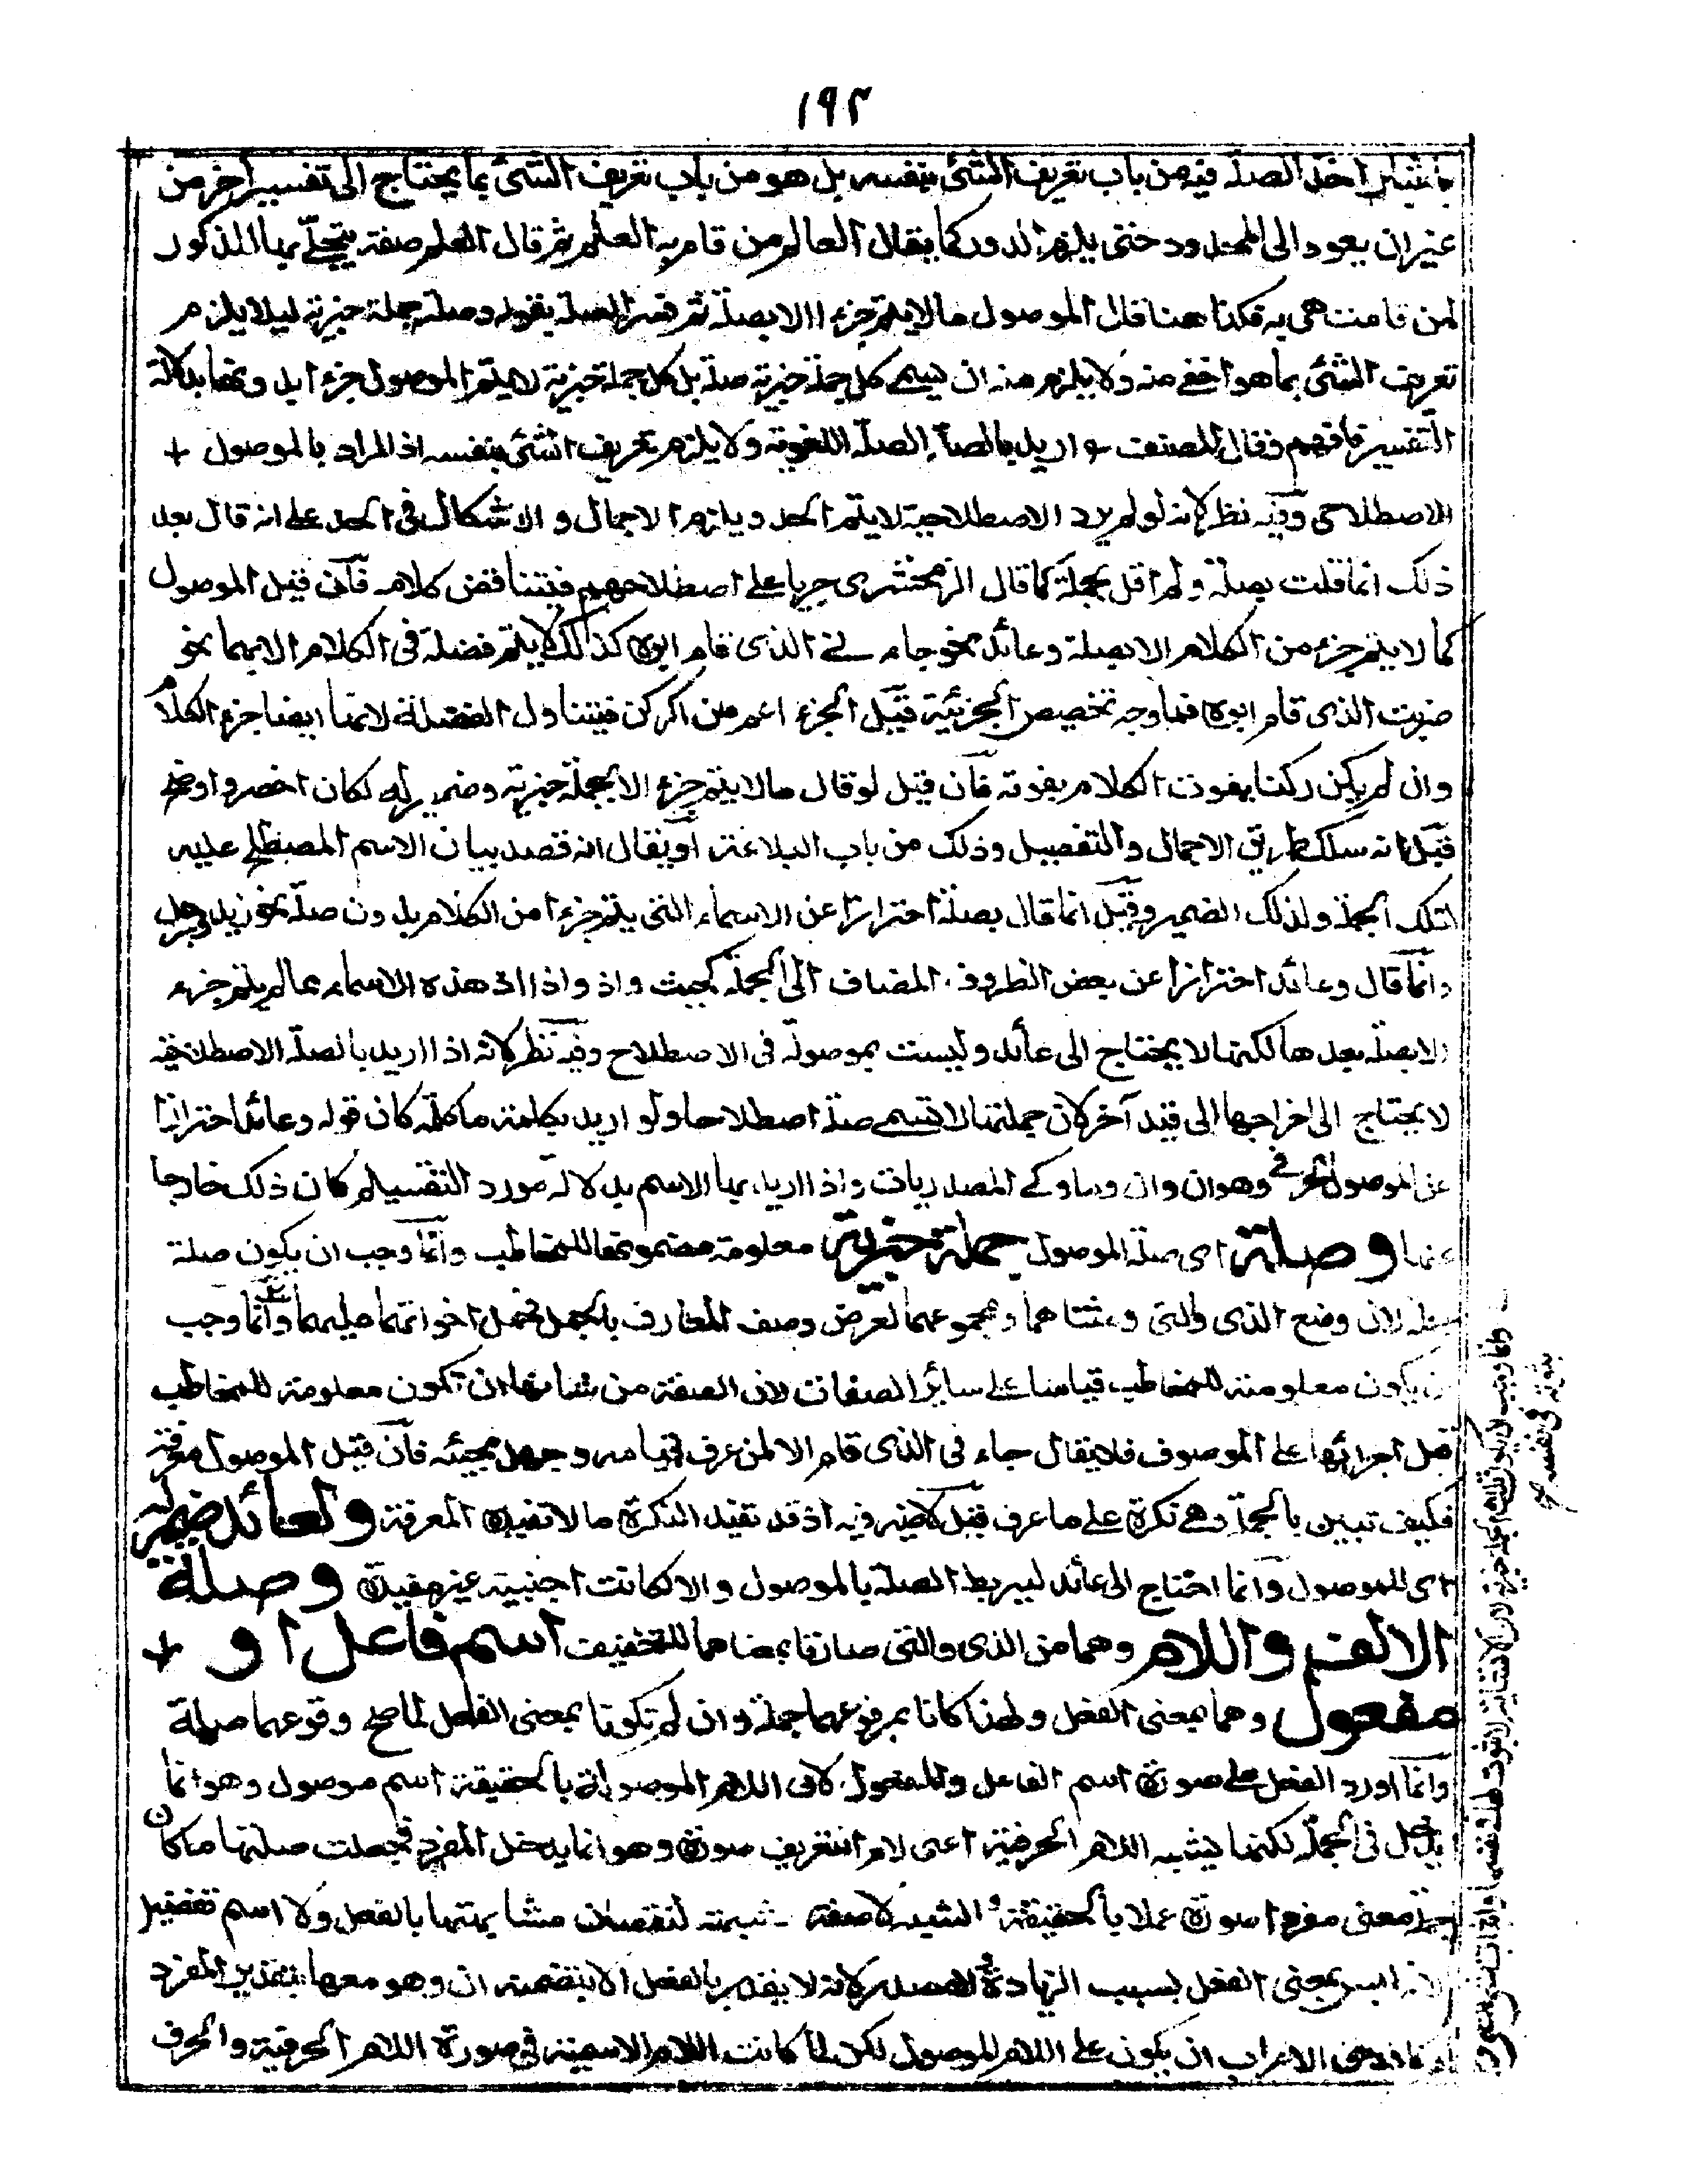 ١٩٢
باعتبار اخذ الصلة فيه من باب تعريف الشئ بنفسه بل هو من باب تعريف الشئ بما يحتاج الى تفسير آخر من
غير ان يعود الى المحدود حتى يلزم الدور كما يقال العالم من قام به العلم ثم قال العلم صفة يتجلّى بها المذكور
لمن قامت هى به فكذا هنا قال الموصول ما لا يتم جزءا الا بصلة ثم فسر الصلة بقوله وصلته جملة خبرية ليلا يلزم
تعريف الشئ بما هو اخفى منه ولا يلزم منه ان يسمى كل جملة خبرية صلة بل كل جملة خبرية لا يتم الموصول جزءا بدونها بدلالة
التفسير فافهم وقال المصنف اريد بالصلة الصلة اللغوية ولا يلزم تعريف الشئ بنفسه اذ المراد بالموصول +
الاصطلاحى وفيه نظر لانه لو لم يرد الاصطلاحية لا يتم الحد ويلزم الاجمال والاشكال فى الحد على انه قال بعد
ذلك انما قلت بصلة ولم اقل بجملة كما قال الزمخشرى جريا على اصطلاحهم فيتناقض كلامه فان قيل الموصول
كما لا يتم جزء من الكلام الا بصلة وعائد نحو جاءنى الذى قام ابوه كذلك لا يتم فضلة فى الكلام الا بهما نحو
ضربت الذى قام ابوه فما وجه تخصيص الجزئية قيل الجزء اعم من الركن فيتناول الفضلة لانها ايضا جزء الكلام
وان لم يكن ركنا يفوت الكلام بفوته فان قيل لو قال ما لا يتم جزء الا بجملة خبرية وضمير له لكان اخصر واوضح
قيل انه سلك طريق الاجمال والتفصيل وذلك من باب البلاغة او يقال انه قصد بيان الاسم المصطلح عليه
لتلك الجملة ولذلك الضمير وقيل انما قال بصلة احترازا عن الاسماء التى يتم جزءا من الكلام بدون صلة نحو زيد ورجل
وانما قال وعائد احترازا عن بعض الظروف المضاف الى الجملة كحيث واذ واذا اذ هذه الاسماء مما لم يتم جزء
الا بصلة بعدها لكنها لا يحتاج الى عائد وليست بموصولة فى الاصطلاح وفيه نظر لانه اذا اريد بالصلة الاصطلاحية
لا يحتاج الى اخراجها الى قيد آخر لان جملتها لا تسمى صلة اصطلاحا ولو اريد بكلمة ما كلمة كان قوله وعائد احترازا
عن الموصول الحرفى وهو ان وان وما وكى المصدريات واذا اريد بها الاسم بدلالة مورد التقسيم كان ذلك خارجا
عنها وصلته اى صلة الموصول جملة خبرية معلومة مضمونها للمخاطب وانما وجب ان يكون صلة
جملة لان وضع الذى والتى ومثناهما ومجموعهما لغرض وصف المعارف بالجمل فحمل اخواتهما عليهما وانما وجب
ان يكون معلومة للمخاطب قياسا على سائر الصفات لان الصفة من شانها ان تكون معلومة للمخاطب
قبل اجرائها على الموصوف فلا يقال جاءنى الذى قام الا لمن عرف قيامه وجهل مجيئه فان قيل الموصول معرفة
فكيف تبين بالجملة وهى نكرة على ما عرف قيل لا ضير فيه اذ قد تفيد النكرة ما لا تفيده المعرفة والعائد ضمير له
اى للموصول وانما احتاج الى عائد ليربط الصلة بالموصول والا لكانت اجنبية غير مفيدة وصلة
الالف واللام وهما من الذى والتى صارتا بعضاهما للتخفيف اسم فاعل او +
مفعول وهما بمعنى الفعل ولهذا كانا بمرفوعهما جملة وان لم تكونا بمعنى الفعل لما صح وقوعهما صلة
وانما اورد الفعل على صورة اسم الفاعل والمفعول لان اللام الموصولة بالحقيقة اسم موصول وهو انما
يدخل فى الجملة لكنها يشبه اللام الحرفية اعنى لام التعريف صورة وهو انما يدخل المفرد فجعلت صلتها ما كان
جملة معنى مفردا صورة عملا بالحقيقة والشبه لا صفة شبهة لنقصان مشابهتها بالفعل ولا اسم تفضيل
لانه ليس بمعنى الفعل بسبب الزيادة ولا مصدر لانه لا يقدر بالفعل الا بتضميمه ان وهو معها بتقدير المفرد
الاعراب ان يكون على اللام الموصول لكن لما كانت اللام الاسمية فى صورة اللام الحرفية والحرف
وانما وجب ان يكون تلك الجملة خبرية لان الانشائية لا ثبوت لها فى نفسها
ثبوته فى نفسه